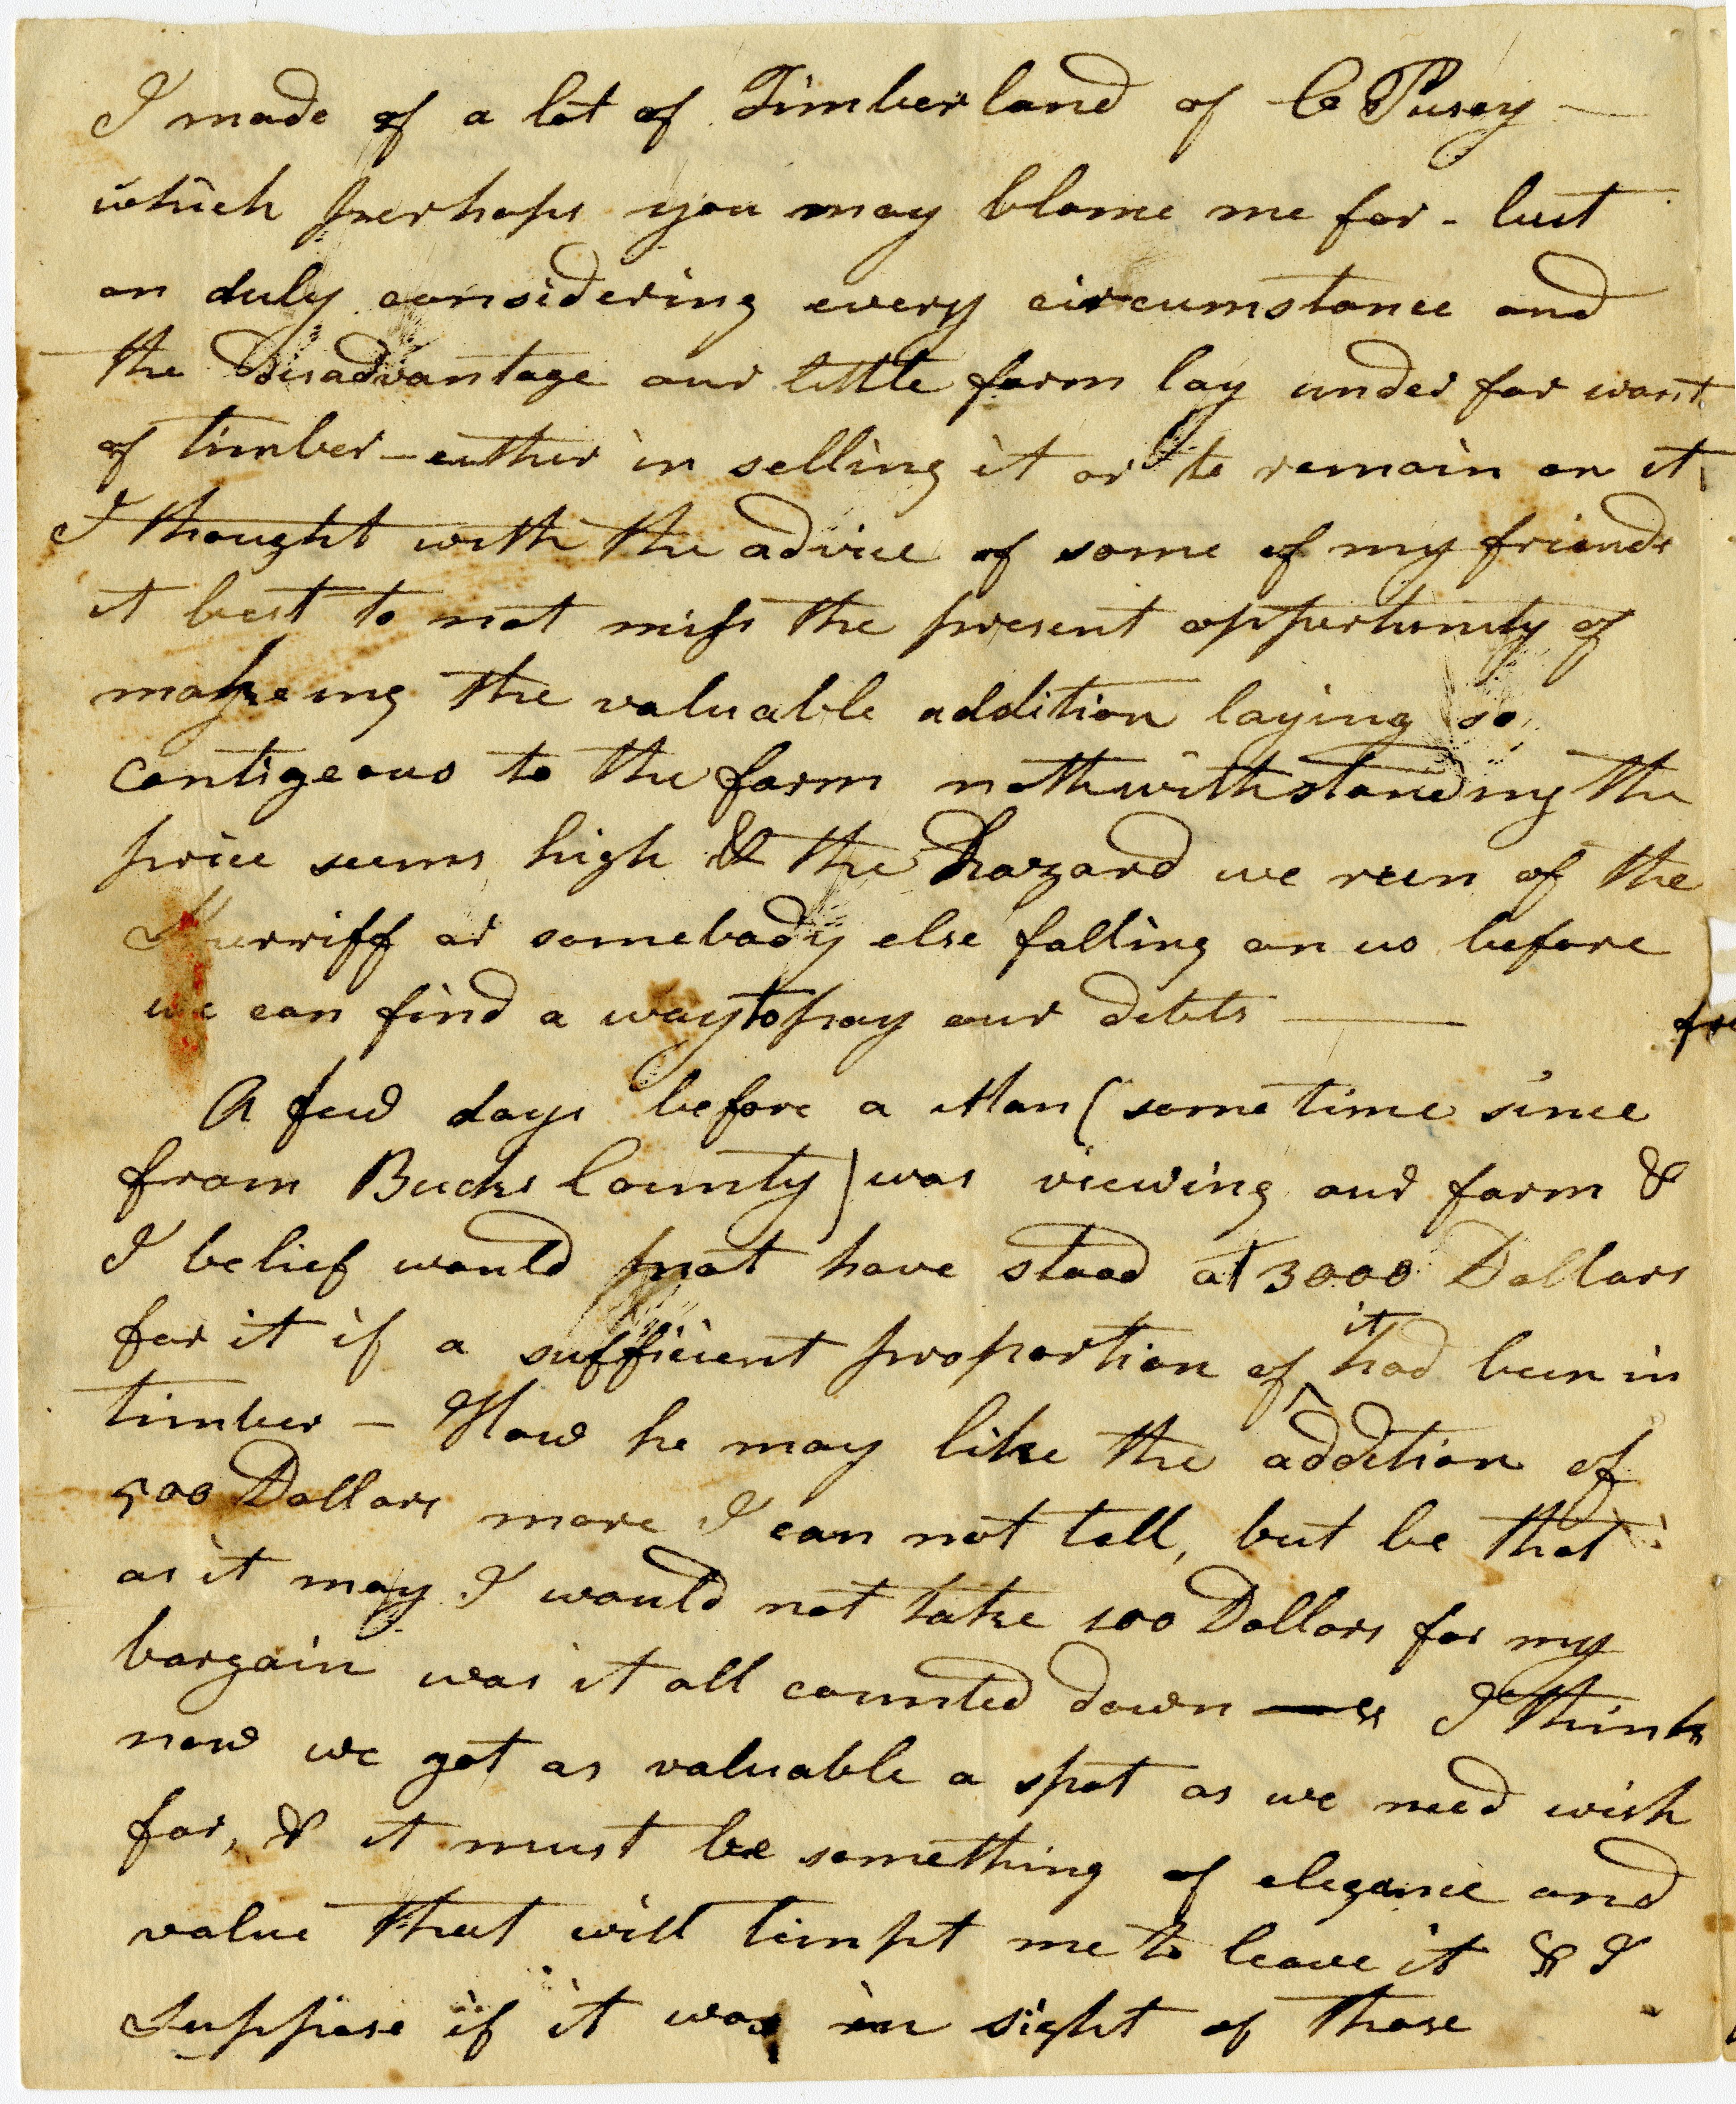 I made of a lot of Timber land of C Pusey —
which perhaps you may blame me for - but
on duly considering every circumstance and
the Disadvantage our little farm lay under for want
of timber — either in selling it or to remain on it
I thought with the advice of some of my friends
it best to not miss the present oppertunity of
makeing the valuable addition laying so
contigeous to the farm nothwithstanding the
price seems high & the hazard we run of the
Sherriff or somebody else falling on us before
we can find a way to pay our debts ———
A few days before a Man (some time since
from Bucks County) was viewing our farm &
I belief would not have stood at 3000 Dollars
for it if a sufficient proportion of it had been in
timber — How he may like the addition of
500 Dollars more I can not tell, but be that
as it may I would not take 100 Dollars for my
bargain was it all counted down — I think
now we got as valuable a spot as we need wish
for, & it must be something of elegance and
value that will timpt me to leave it & I
suppose if it was in sight of those